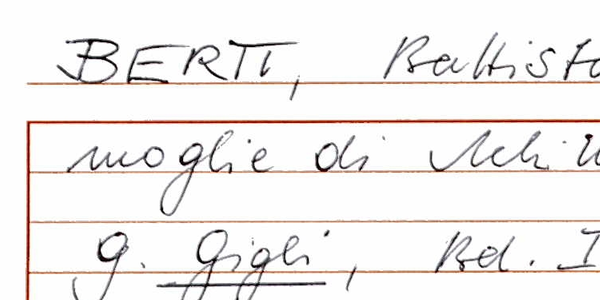 BERTI, Battista
moglie di
G. Gigli, Bd. I